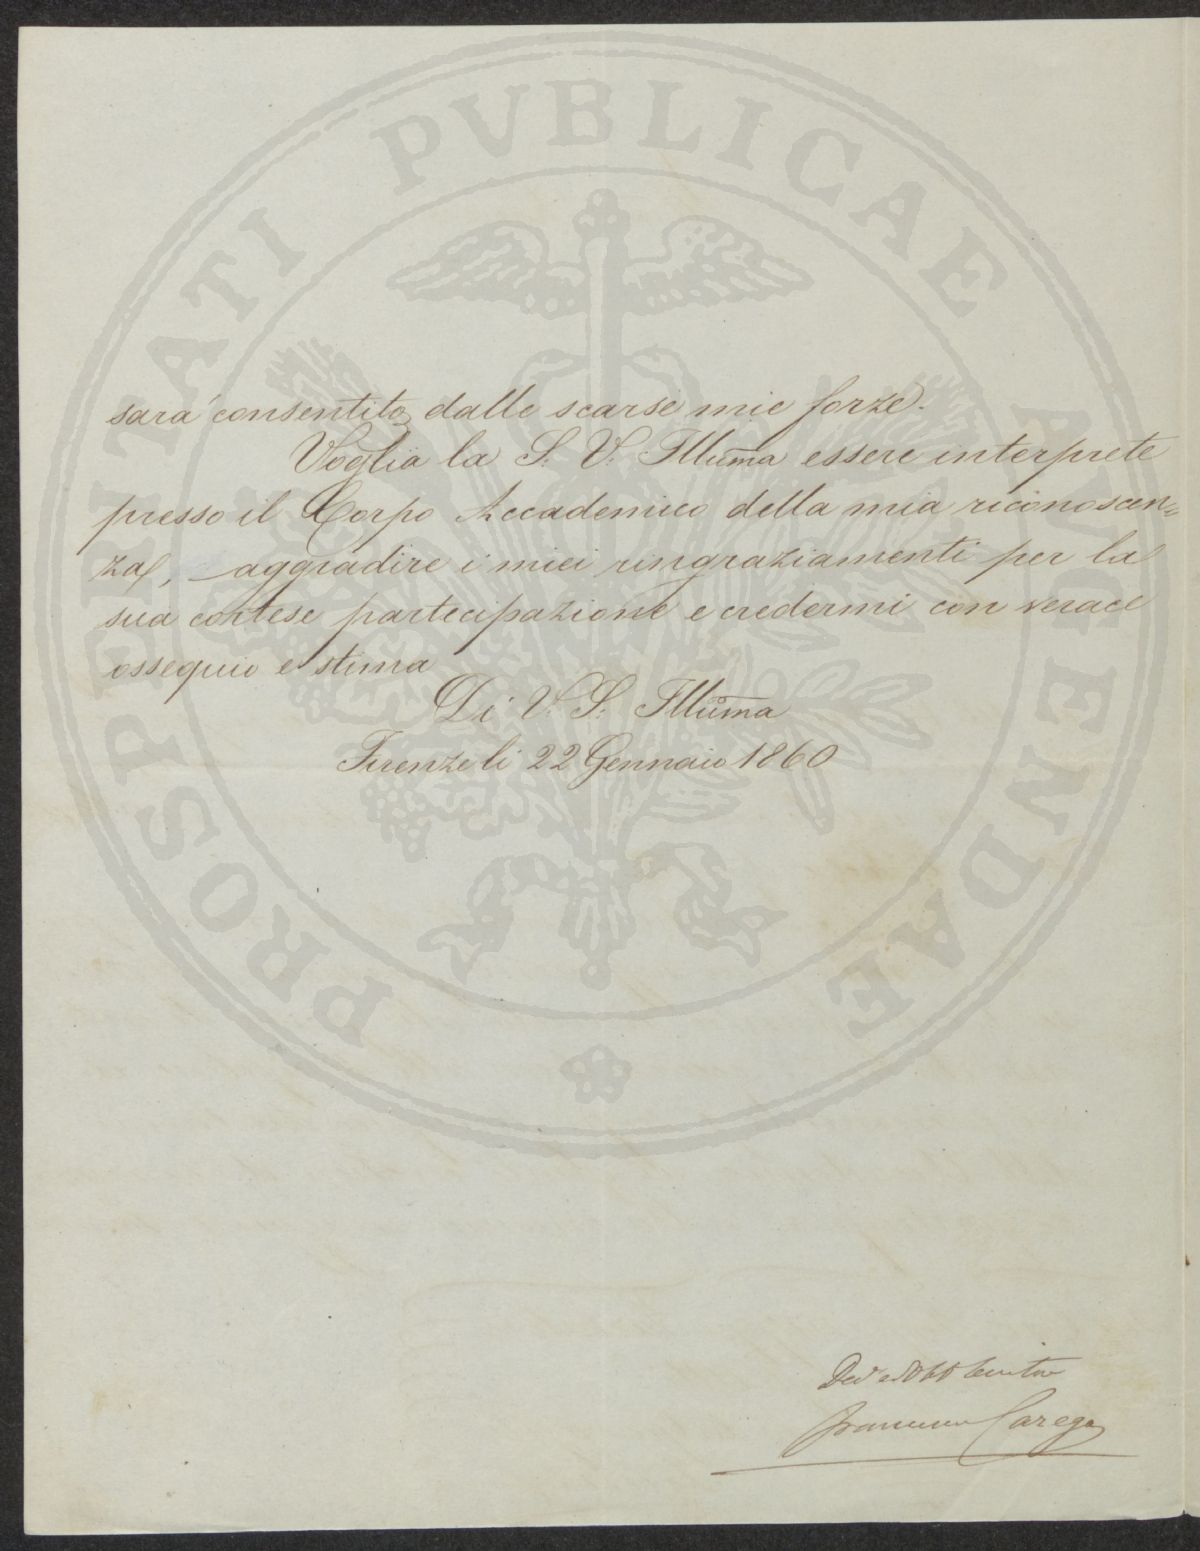 PROSPERITATI PVBLICAE AVGENDAE
sarà consentito dalle scarse mie forze.
Voglia la S. V. Illuma essere interprete
presso il Corpo Accademico della mia riconoscen=
za, aggradire i miei ringraziamenti per la
sua cortese partecipazione e credermi con verace
ossequio e stima
Di V. S. Illuma
Firenze li 22 Gennaio 1860
Francesco Carega